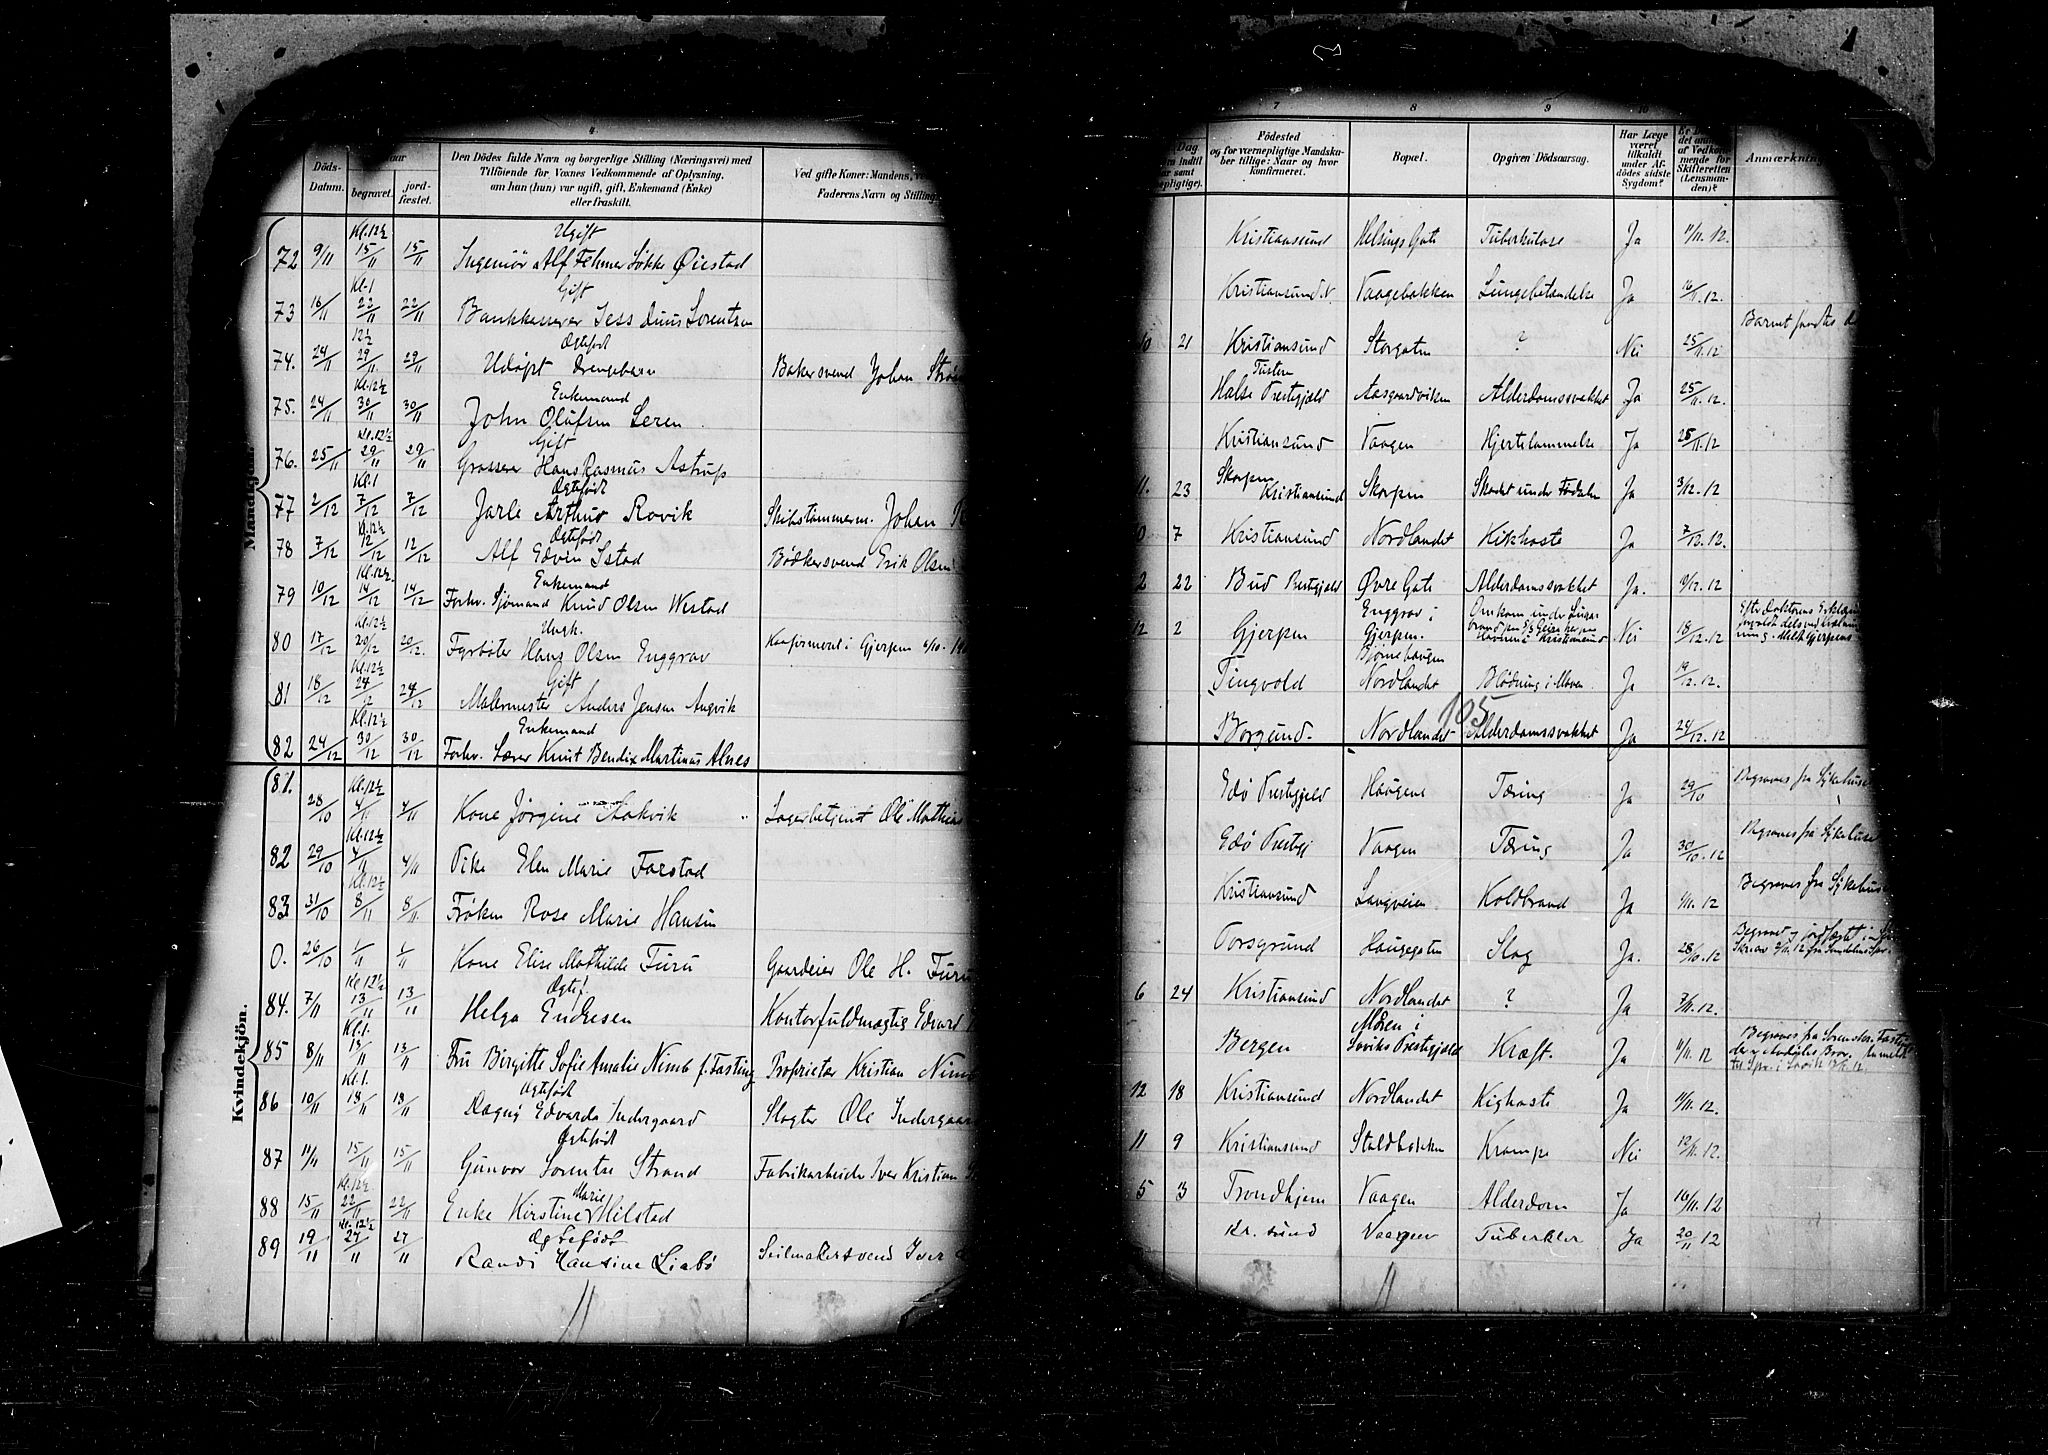 4
Döds-Datum.
begravet.
jord-fæstet.
Den Dödes fulde Navn og borgerlige Stilling (Næringsvei) med
Tilföiende for Voxnes Vedkommende af Oplysning,
om han (hun) var ugift, gift, Enkemand (Enke)
eller fraskilt.
Ved gifte Koner: Mandens,
Faderens Navn og Stilling
Kl. 12½ Ugift
72 9/11 15/11 15/11 Ingeniör Alf Fehmer Lökke Öiestad
Kl. 1 Gift
73 16/11 22/11 22/11 Bankkasserer Jess Duus Lorentzen
12½ Ogtefödt
74. 24/11 29/11 29/11 Udöpt Drengebarn Bakersvend Johan
Kl. 12½ Enkemand
75. 24/11 30/11 30/11 John Olufsen Leren
Kl. 12½ Gift
76. 25/11 29/11 29/11 Grosserer Hans Rasmus Astrup
Kl. 1 Ogtefödt
77 2/12 7/12 7/12 Jarle Arthur Rovik Skibstömmerm. Johan
Kl. 12½ Ogtefödt
78 7/12 12/12 12/12 Alf Edvin Istad Bödkersvend Erik Olsen
Kl. 12½ Enkemand
79 10/12 14/12 14/12 Forhv. Sjömand Knud Olsen Westad
Kl. 12½ Ungk.
80 17/12 20/12 20/12. Fyrböter Hans Olsen Enggrav Konfirmeret i Gjerpen
Kl. 12½ Gift
81 18/12 24/12 24/12 Malermester Anders Jensen Angvik
Kl. 12½ Enkemand
82 24/12 30/12 30/12 Forhv. Lærer Knut Bendix Martinus Alnes
Mandkjön.
Kvindekjön.
81. Kl. 12½
28/10 4/11 4/11 Kone Jörgine Aakvik Lagerbetjent Ole Mathias
Kl. 12½
82 29/10 4/11 4/11 Pike Elen Marie Farstad
Kl. 12½
83 31/10 8/11 8/11 Fröken Rose Marie Hansen
0. 26/10 1/11 1/11 Kone Elise Mathilde Furu Gaardeier Ole H. Furu
Kl. 12½ Ogtef.
84. 7/11 13/11 13/11 Helga Endresen Kontorfuldmægtig Edvard
Kl. 1.
85 8/11 13/11 13/11 Fru Birgitte Sofie Amalie Nimb f. Fasting Proprietær Kristian Nimb
Kl. 1. Ogtefödt
86 10/11 18/11 18/11 Dagny Edvarda Indergaard Slagter Ole Indergaard
Ogtefödt
87 11/11 15/11 15/11 Gunvor Lorentze Strand Fabrikarbeider Iver Kristian
Kl. 12½ Marie
88 15/11 22/11 22/11 Enke Kirstine Hilstad
Kl. 12½ Ogtefödt
89 19/11 27/11 27/11 Randi Hansine Liabö Seilmakersvend Iver
7
8
9
10
Dag
Födested
og for værnepligtige Mandska-
ber tillige: Naar og hvor
konfirmeret.
Bopæl.
Opgiven Dödsaarsag.
Har Læge
været
tilkaldt
under Af-
dödes sidste
Sygdom?
af Vedkom-
mende for
Skifteretten
(Lensman-
den)?
Anmærkning
Kristiansund Helsings Gate Tuberkulose Ja 11/11. 12.
Kristiansund N. Vaagebakken Lungebetændelse Ja 16/11. 12.
Barnet fandtes
0 21 Kristiansund Storgaten ? Nei 25/11. 12
Tustern
Halse Prestegjeld Aasgaardviken Alderdomssvakhet Ja 25/11. 12.
Kristiansund Vaagen Hjertelammelse Ja 25/11. 12
Skorpen
11. 23 Kristiansund Skorpen Skadet under Födselen Ja 3/12. 12
0 7 Kristiansund Nordlandet Kikhoste Ja 7/12. 12.
2 22 Bud Prestegjeld Övre Gate Alderdomssvakhet Ja. 11/12. 12
12 2 Gjerpen Enggrav i Gjerpen. Nei 18/12. 12
Tingvold Björnehaugen Nordlandet Blödning i Maven Ja 19/12. 12.
105
Borgund. Nordlandet Alderdomssvakhet Ja 24/12. 12
Edö Prestegjeld Haugene Tæring Ja 29/10 Begraves fra Sykehuset
Edö Prestegj Vaagen Tæring Ja 30/10. 12 Begraves fra Sykehuset
Kristiansund Langveien Koldbrand Ja 1/11. 12 Begraves fra Sykehuset
Porsgrund Haugegaten Slag Ja. 28/10. 12
6 24 Kristiansund Nordlandet ? Ja 7/11. 12.
Bergen Kræft. Ja 11/11. 12
12 18 Kristiansund Nordlandet Kighoste Ja 11/11. 12.
11 9 Kristiansund Staldbakken Krampe Nei 12/11. 12.
5 3 Trondhjem Vaagen Alderdom Ja 16/11. 12
Kr. sund Vaagen Tuberkler Ja 20/11 12